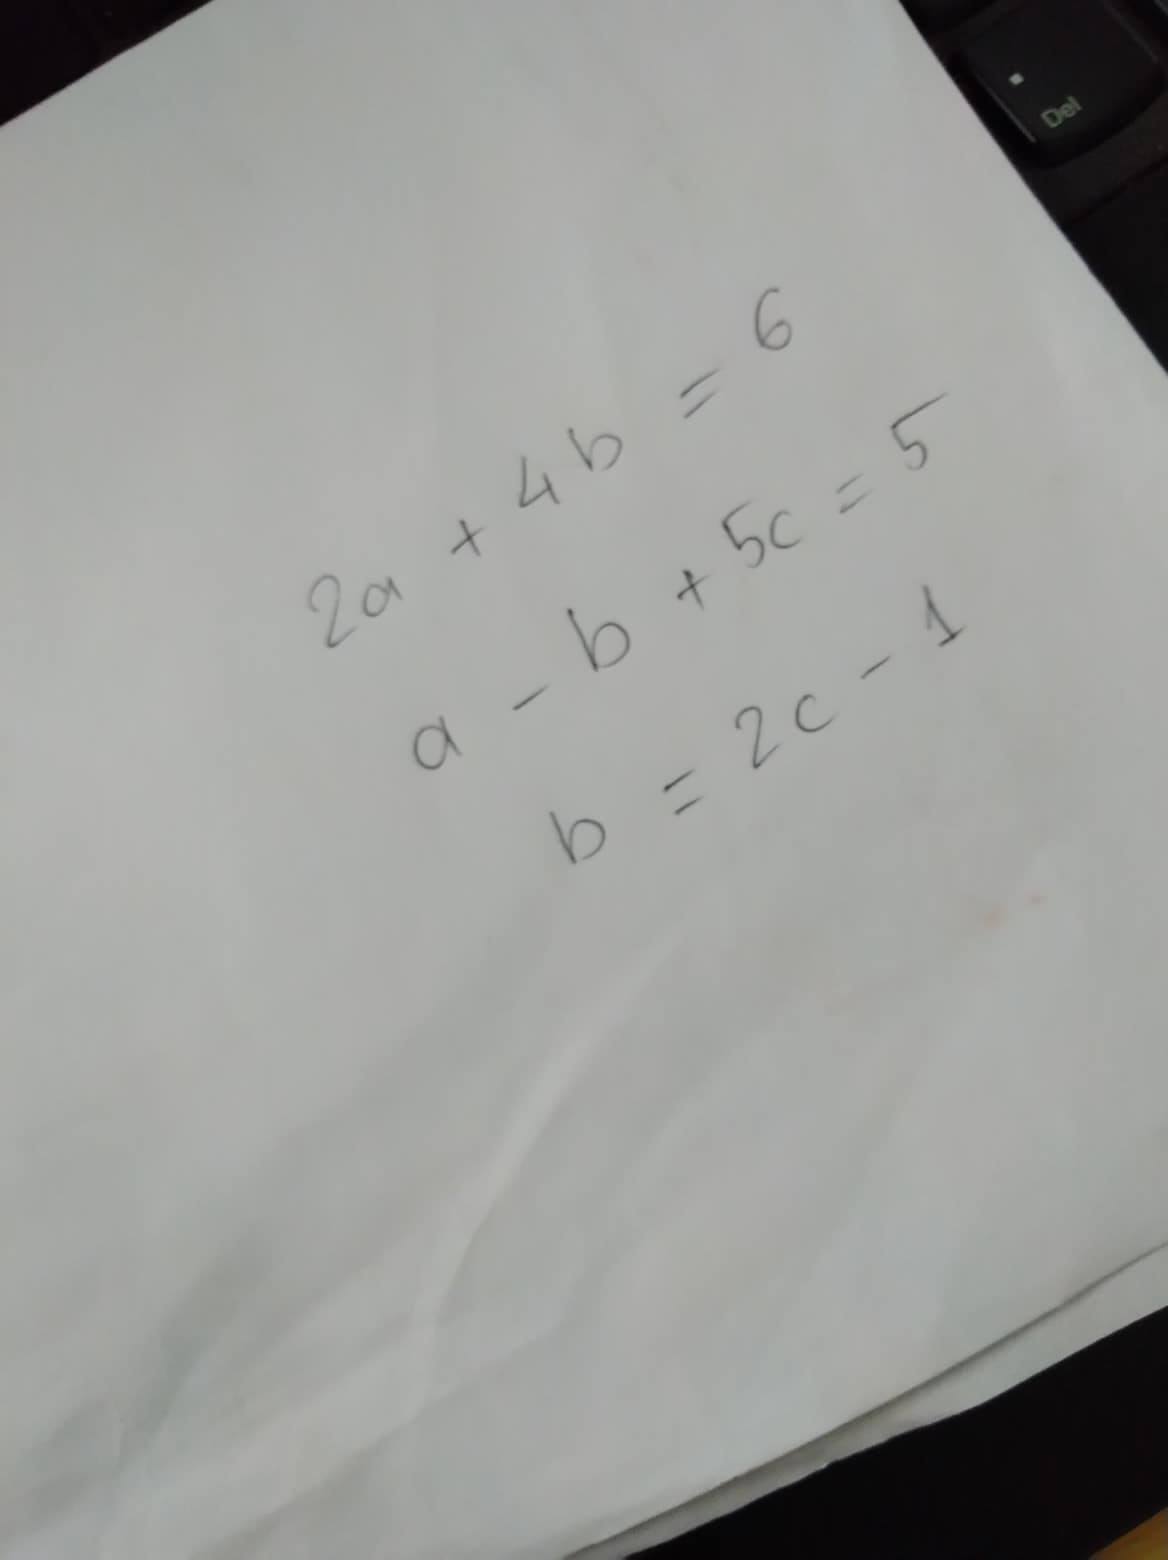 Del
2a + 4b = 6
a - b + 5c = 5
b = 2c - 1